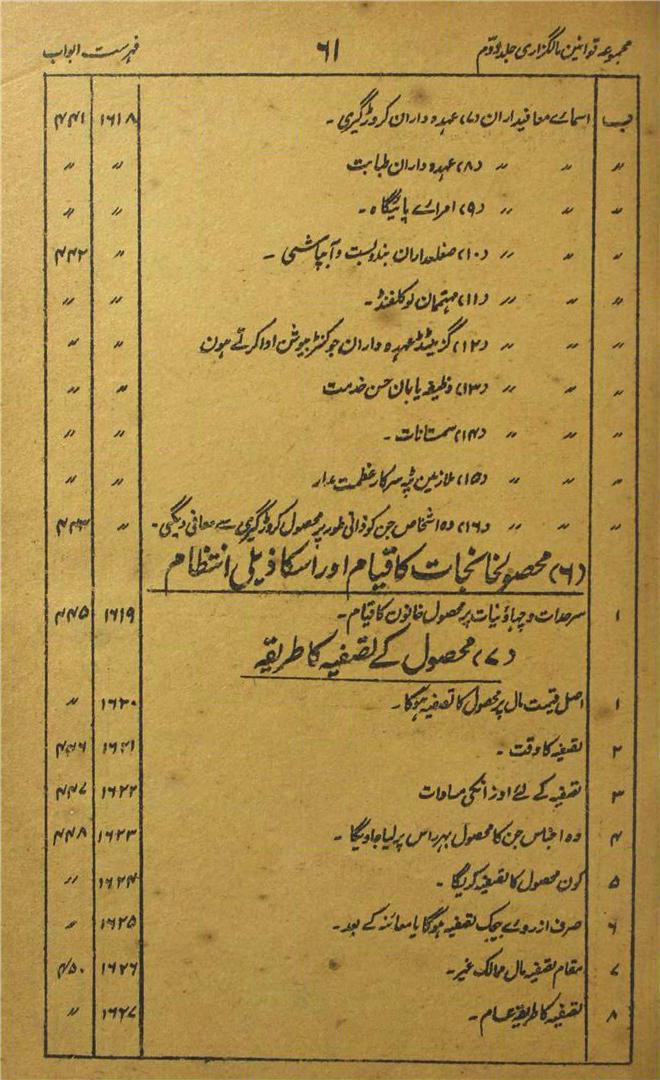 مجموعہ قوانین مالگزاری جلد دوم ۶۱ فہرست ابواب
ب اسماے معافیداران (۷) عہدہ داران کروڑگیری ۔ ۱۶۱۸ ۴۴۱
〃 〃 〃 (۸) عہدہ داران طبابت 〃 〃
〃 〃 〃 (۹) امراے پائیگاہ ۔ 〃 〃
〃 〃 〃 (۱۰) ضلعداران بندوبست و آبپاشی ۔ 〃 ۴۴۲
〃 〃 〃 (۱۱) مہتممان لوکلفنڈ ۔ 〃 〃
〃 〃 〃 (۱۲) گزیٹڈ عہدہ داران جو کنٹریبیوشن ادا کرتے ہون 〃 〃
〃 〃 〃 (۱۳) وظیفہ یابان حسن خدمت 〃 〃
〃 〃 〃 (۱۴) سمستانات ۔ 〃 〃
〃 〃 〃 (۱۵) ملازمین ٹپہ سرکار عظمت مدار 〃 〃
〃 〃 〃 (۱۶) وہ اشخاص جن کو ذاتی طور پر محصول کروڑگیری سے معافی دیگئی ۔ 〃 ۴۴۳
(۶) محصولخانجات کا قیام اور اسکا ذیلی انتظام
۱ سرحدات و چہاؤنیات پر محصول خانون کا قیام ۔ ۱۶۱۹ ۴۴۵
(۷) محصول کے تصفیہ کا طریقہ
۱ اصل قیمت مال پر محصول کا تصفیہ ہوگا ۔ ۱۶۲۰ 〃
۲ تصفیہ کا وقت ۔ ۱۶۲۱ ۴۴۶
۳ تصفیہ کے لئے اوزانکی مساوات ۱۶۲۲ ۴۴۷
۴ وہ اجناس جن کا محصول بہر راس پر لیا جاویگا ۔ ۱۶۲۳ ۴۴۸
۵ کون محصول کا تصفیہ کریگا ۔ ۱۶۲۴ 〃
۶ صرف از روے بیجک تصفیہ ہوگا یا معائنہ کے بعد ۔ ۱۶۲۵ 〃
۷ مقام تصفیہ مال ممالک غیر ۔ ۱۶۲۶ ۴۵۰
۸ تصفیہ کا طریقہ عام ۔ ۱۶۲۷ 〃